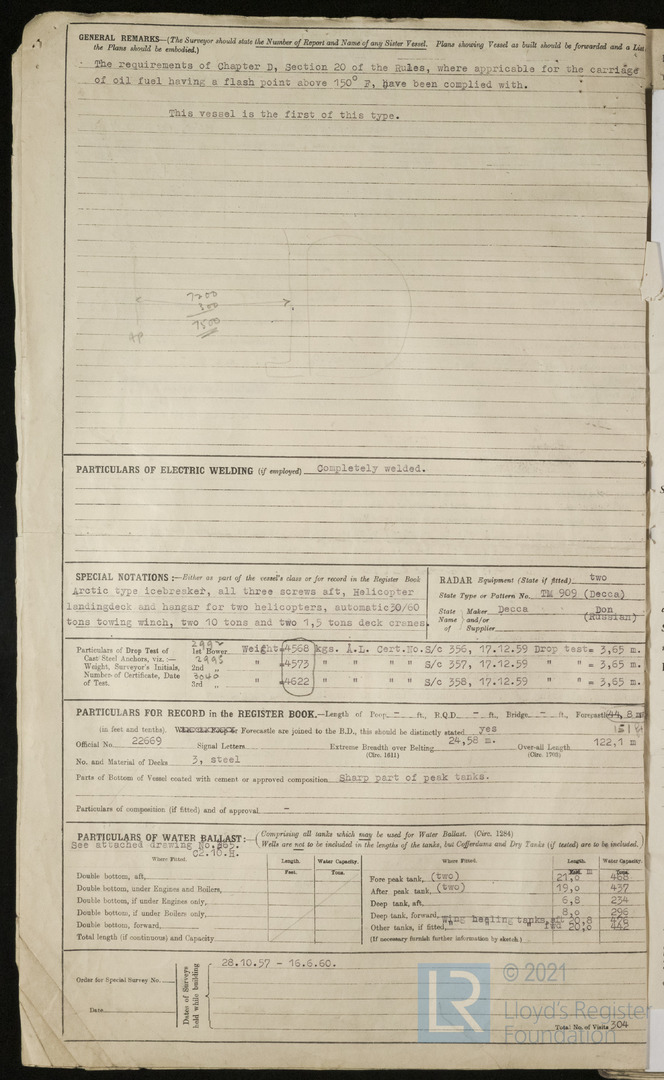 GENERAL REMARKS—(The Surveyor should state the Number of Report and Name of any Sister Vessel. Plans showing Vessel as built should be forwarded and a List
the Plans should be embodied.)
The requirements of Chapter D, Section 20 of the Rules, where appricable for the carriage
of oil fuel having a flash point above 150° F, have been complied with.
This vessel is the first of this type.
7200
300
7500
AP
PARTICULARS OF ELECTRIC WELDING (if employed) Completely welded.
SPECIAL NOTATIONS :—Either as part of the vessel's class or for record in the Register Book
Arctic type icebreaker, all three screws aft, Helicopter
landingdeck and hangar for two helicopters, automatic 30/60
tons towing winch, two 10 tons and two 1,5 tons deck cranes.
RADAR Equipment (State if fitted) two
State Type or Pattern No. TM 909 (Decca)
State Name of Maker and/or Supplier Decca Don (Russian)
Particulars of Drop Test of Cast Steel Anchors, viz. :—
Weight, Surveyor's Initials, Number of Certificate, Date of Test.
1st Bower Weight 4568 kgs. A.L. Cert.No. S/c 356, 17.12.59 Drop test= 3,65 m.
2nd „ " 4573 " " " " S/c 357, 17.12.59 " " = 3,65 m.
3rd „ " 4622 " " " " S/c 358, 17.12.59 " " = 3,65 m.
PARTICULARS FOR RECORD in the REGISTER BOOK.—Length of Poop – ft., R.Q.D. – ft., Bridge – ft., Forecastle 44, 8 m
(in feet and tenths). Forecastle are joined to the B.D., this should be distinctly stated yes
Official No. 22669 Signal Letters Extreme Breadth over Belting 24,58 m. Over-all Length 122,1 m
(Circ. 1611) (Circ. 1703)
No. and Material of Decks 3, steel
Parts of Bottom of Vessel coated with cement or approved composition Sharp part of peak tanks.
Particulars of composition (if fitted) and of approval –
PARTICULARS OF WATER BALLAST:—(Comprising all tanks which may be used for Water Ballast. (Circ. 1284)
Wells are not to be included in the lengths of the tanks, but Cofferdams and Dry Tanks (if tested) are to be included.)
See attached drawing No. 865.
C2.10.H.
Where Fitted. Length. Water Capacity. Where Fitted. Length. Water Capacity.
Feet. Tons. m Tons.
Double bottom, aft, Fore peak tank, (two) 21,0 468
Double bottom, under Engines and Boilers, After peak tank, (two) 19,0 437
Double bottom, if under Engines only, Deep tank, aft, 6,8 234
Double bottom, if under Boilers only, Deep tank, forward, 8,0 296
Double bottom, forward, Other tanks, if fitted, wing heeling tanks, aft 20,8 476
fwd 20,0 442
Total length (if continuous) and Capacity (If necessary furnish further information by sketch)
Order for Special Survey No.
Date
Dates of Surveys held while building
28.10.57 – 16.6.60.
Total No. of Visits 304
LR
© 2021
Lloyd's Register
Foundation